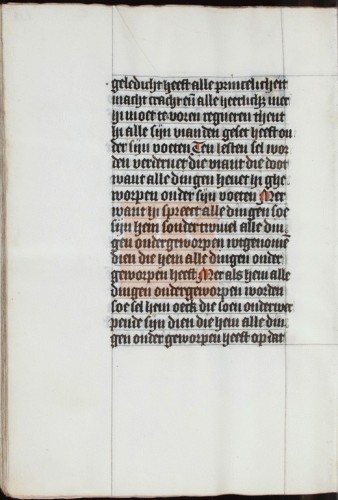 geledicht heeft alle princelicheit
macht cracht en̄ alle heerlich3 mer
hi moet te voren regneren thent
hi alle sijn vianden geset heeft on
der sijn voeten Ten lesten sel wor
den verderuet die viant die doot
want alle dingen heuet hi ghe
worpen onder sijn voeten Mer
want hi spreect alle dingen soe
sijn hem sonder twiuel alle din
gen ondergeworpen wtgenomē
dien die hem alle dingen onder
geworpen heeft Mer als hem alle
dingen ondergeworpen worden
soe sel hem oeck die soen onderwer
pende sijn dien die hem alle din
gen onder geworpen heeft op dat